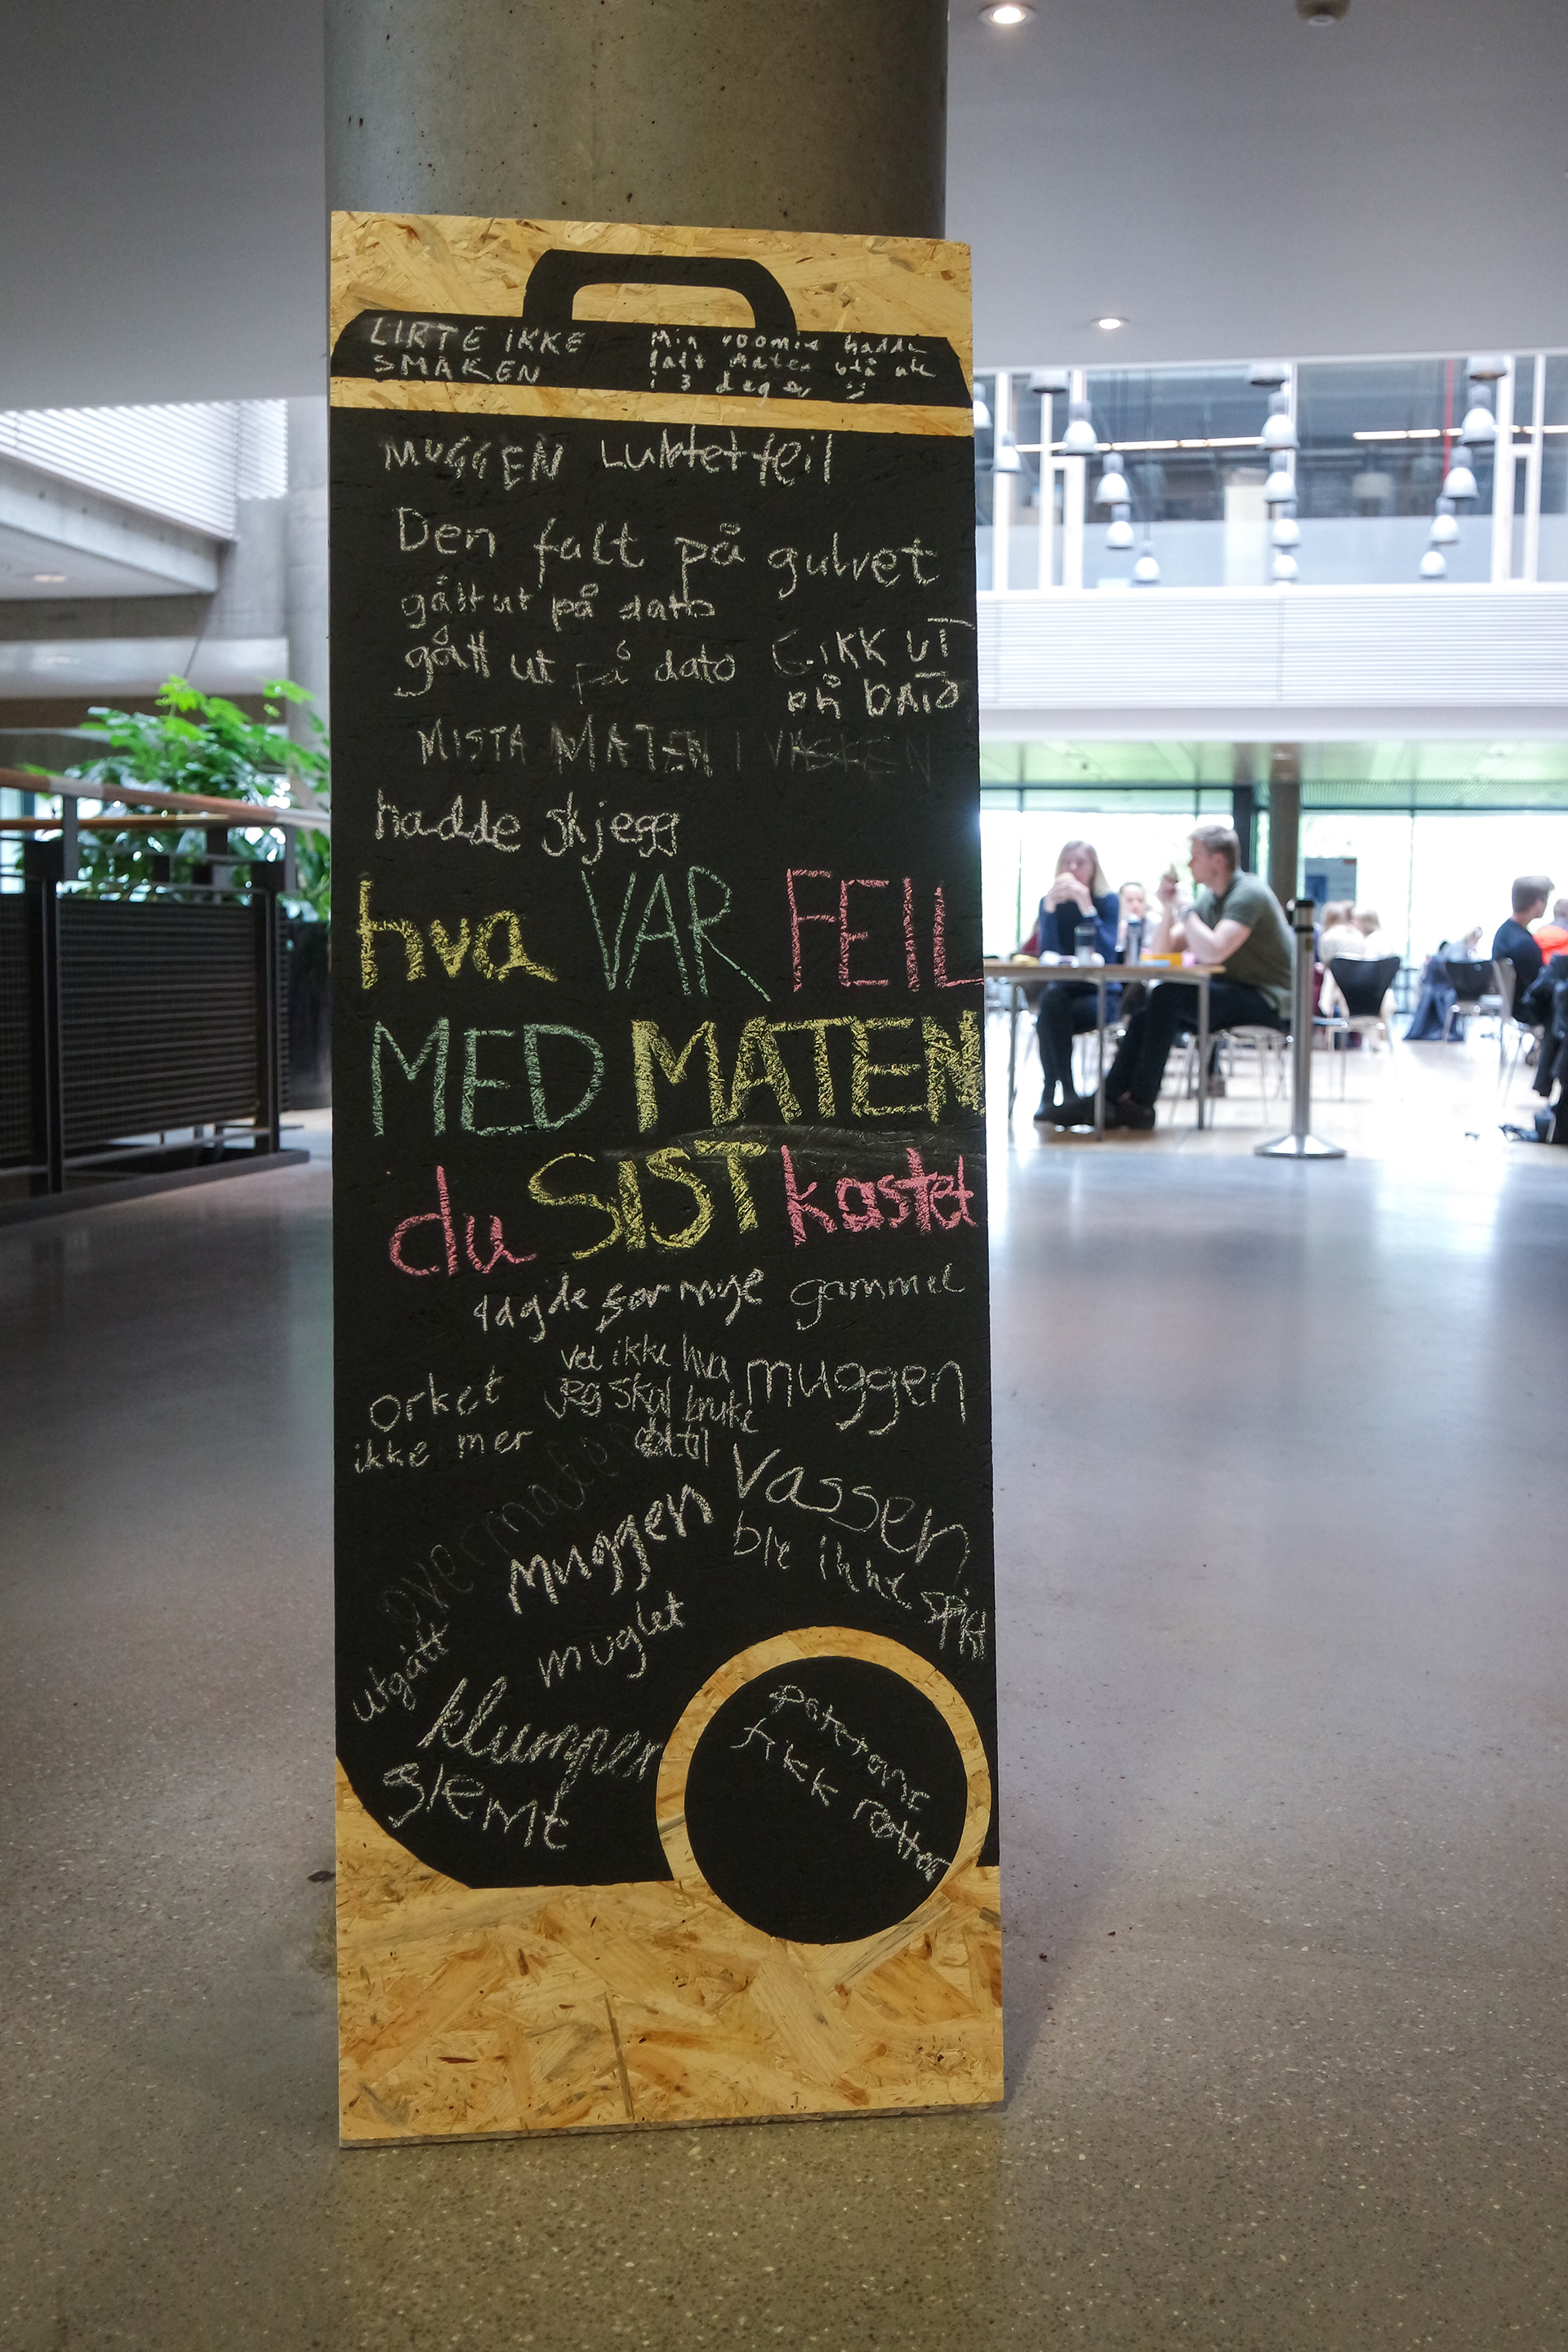 LIKTE IKKE
SMAKEN
Min roomie hadde
latt maten stå ute
i 3 dager
MUGGEN
Luktet feil
Den falt på gulvet
gått ut på dato
gått ut på dato
GIKK UT
på DATO
MISTA MATEN I VASKEN
hadde skjegg
hva VAR FEIL
MED MATEN
du SIST kastet
lagde for mye
gammel
Orket
ikke mer
vet ikke hva
jeg skal bruke
det til
muggen
Vassen
ble ikke spist
overmoden
Muggen
muglet
utgått
klumper
glemt
Potetene
fikk røtter